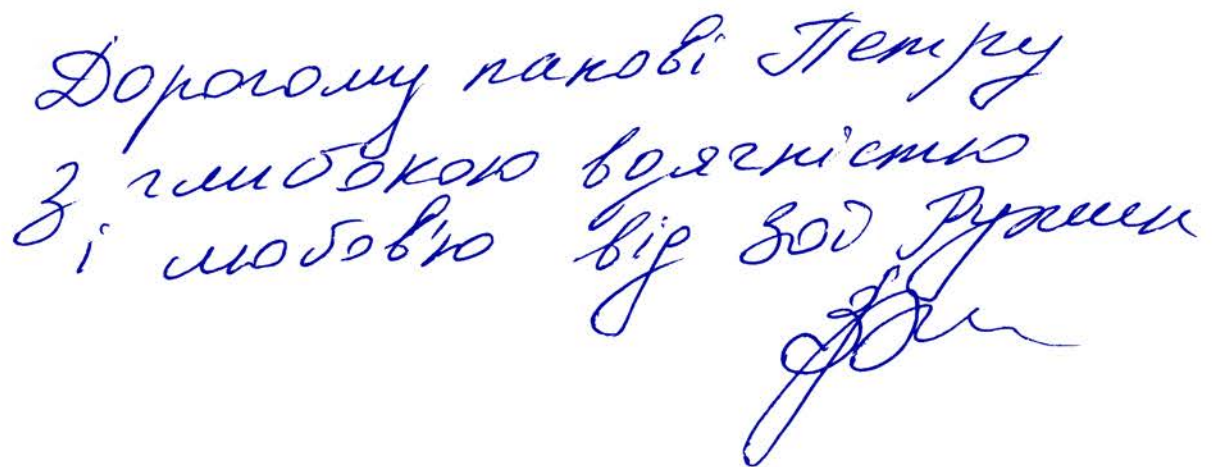 Дорогому панові Петру
з глибокою вдячністю
і любов'ю від Зої Ружин